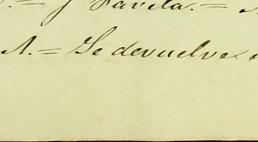 J Pavita. =
A. = Se devuelve